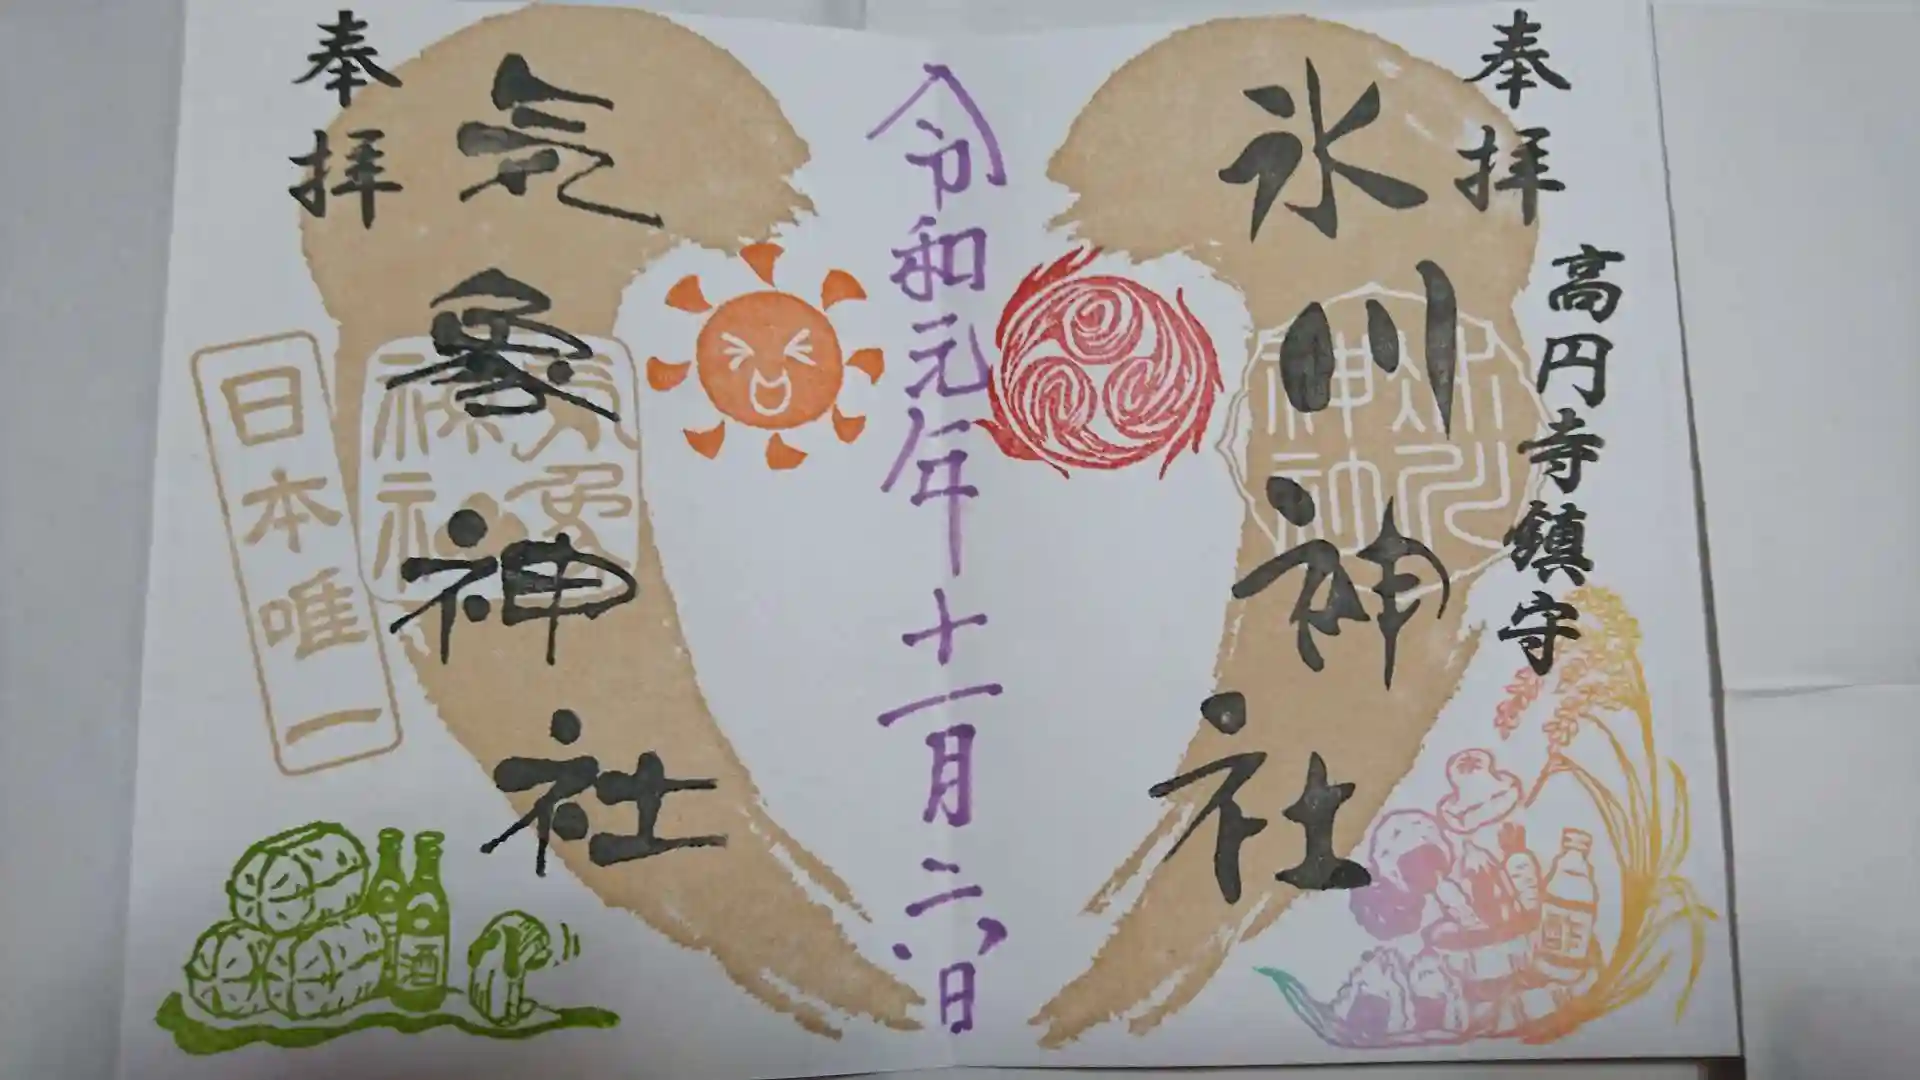 奉拝
高円寺鎮守
氷川神社
氷川神社
令和元年十一月二六日
奉拝
気象神社
気象神社
日本唯一
酒